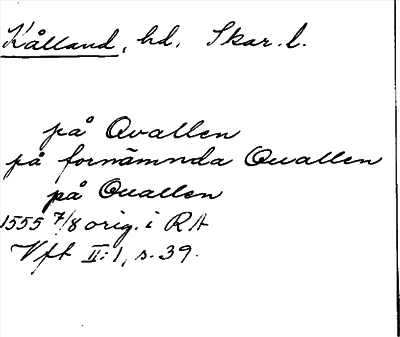 Kålland, hd. Skar. l.
på Qvallen
på fornämnda Quallen
på Quallen
1555 7/8 orig. i RA
Vft II:1, s. 39.